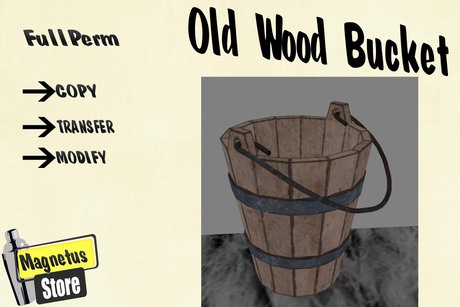 Old Wood Bucket
FullPerm
COPY
TRANSFER
MODIFY
Magnetus
Store